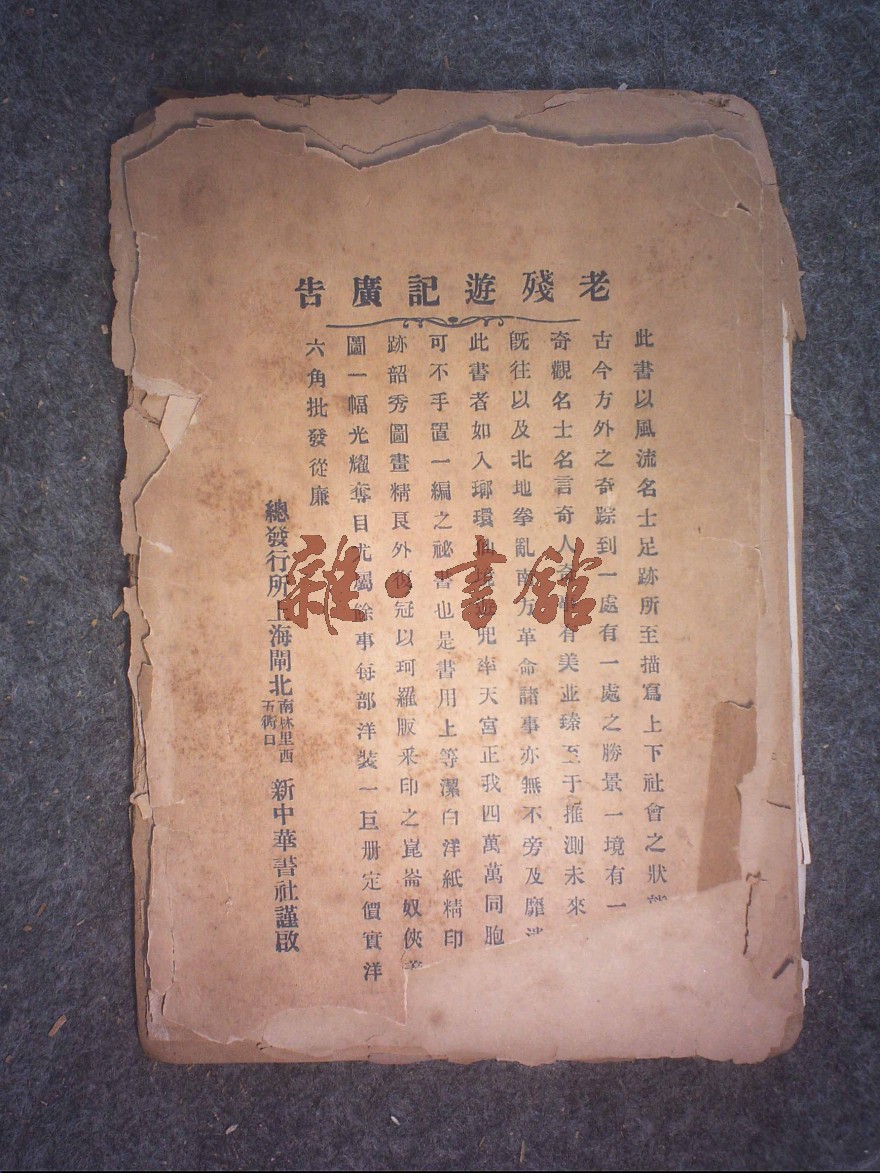 老殘遊記廣告
此書以風流名士足跡所至描寫上下社會之狀
古今方外之奇踪到一處有一處之勝景一境有一
奇觀名士名言奇人奇事有美並臻至于推測未來
既往以及北地拳亂南方革命諸事亦無不旁及靡
此書者如入瑯環仙境兜率天宮正我四萬萬同胞
可不手置一編之祕書也是書用上等潔白洋紙精印
跡韶秀圖畫精良外復冠以珂羅版釆印之崑崙奴俠
圖一幅光耀奪目尤屬餘事每部洋裝一巨册定價實洋
六角批發從廉
總發行所上海閘北南林里西五衖口新中華書社謹啟
雜·書館